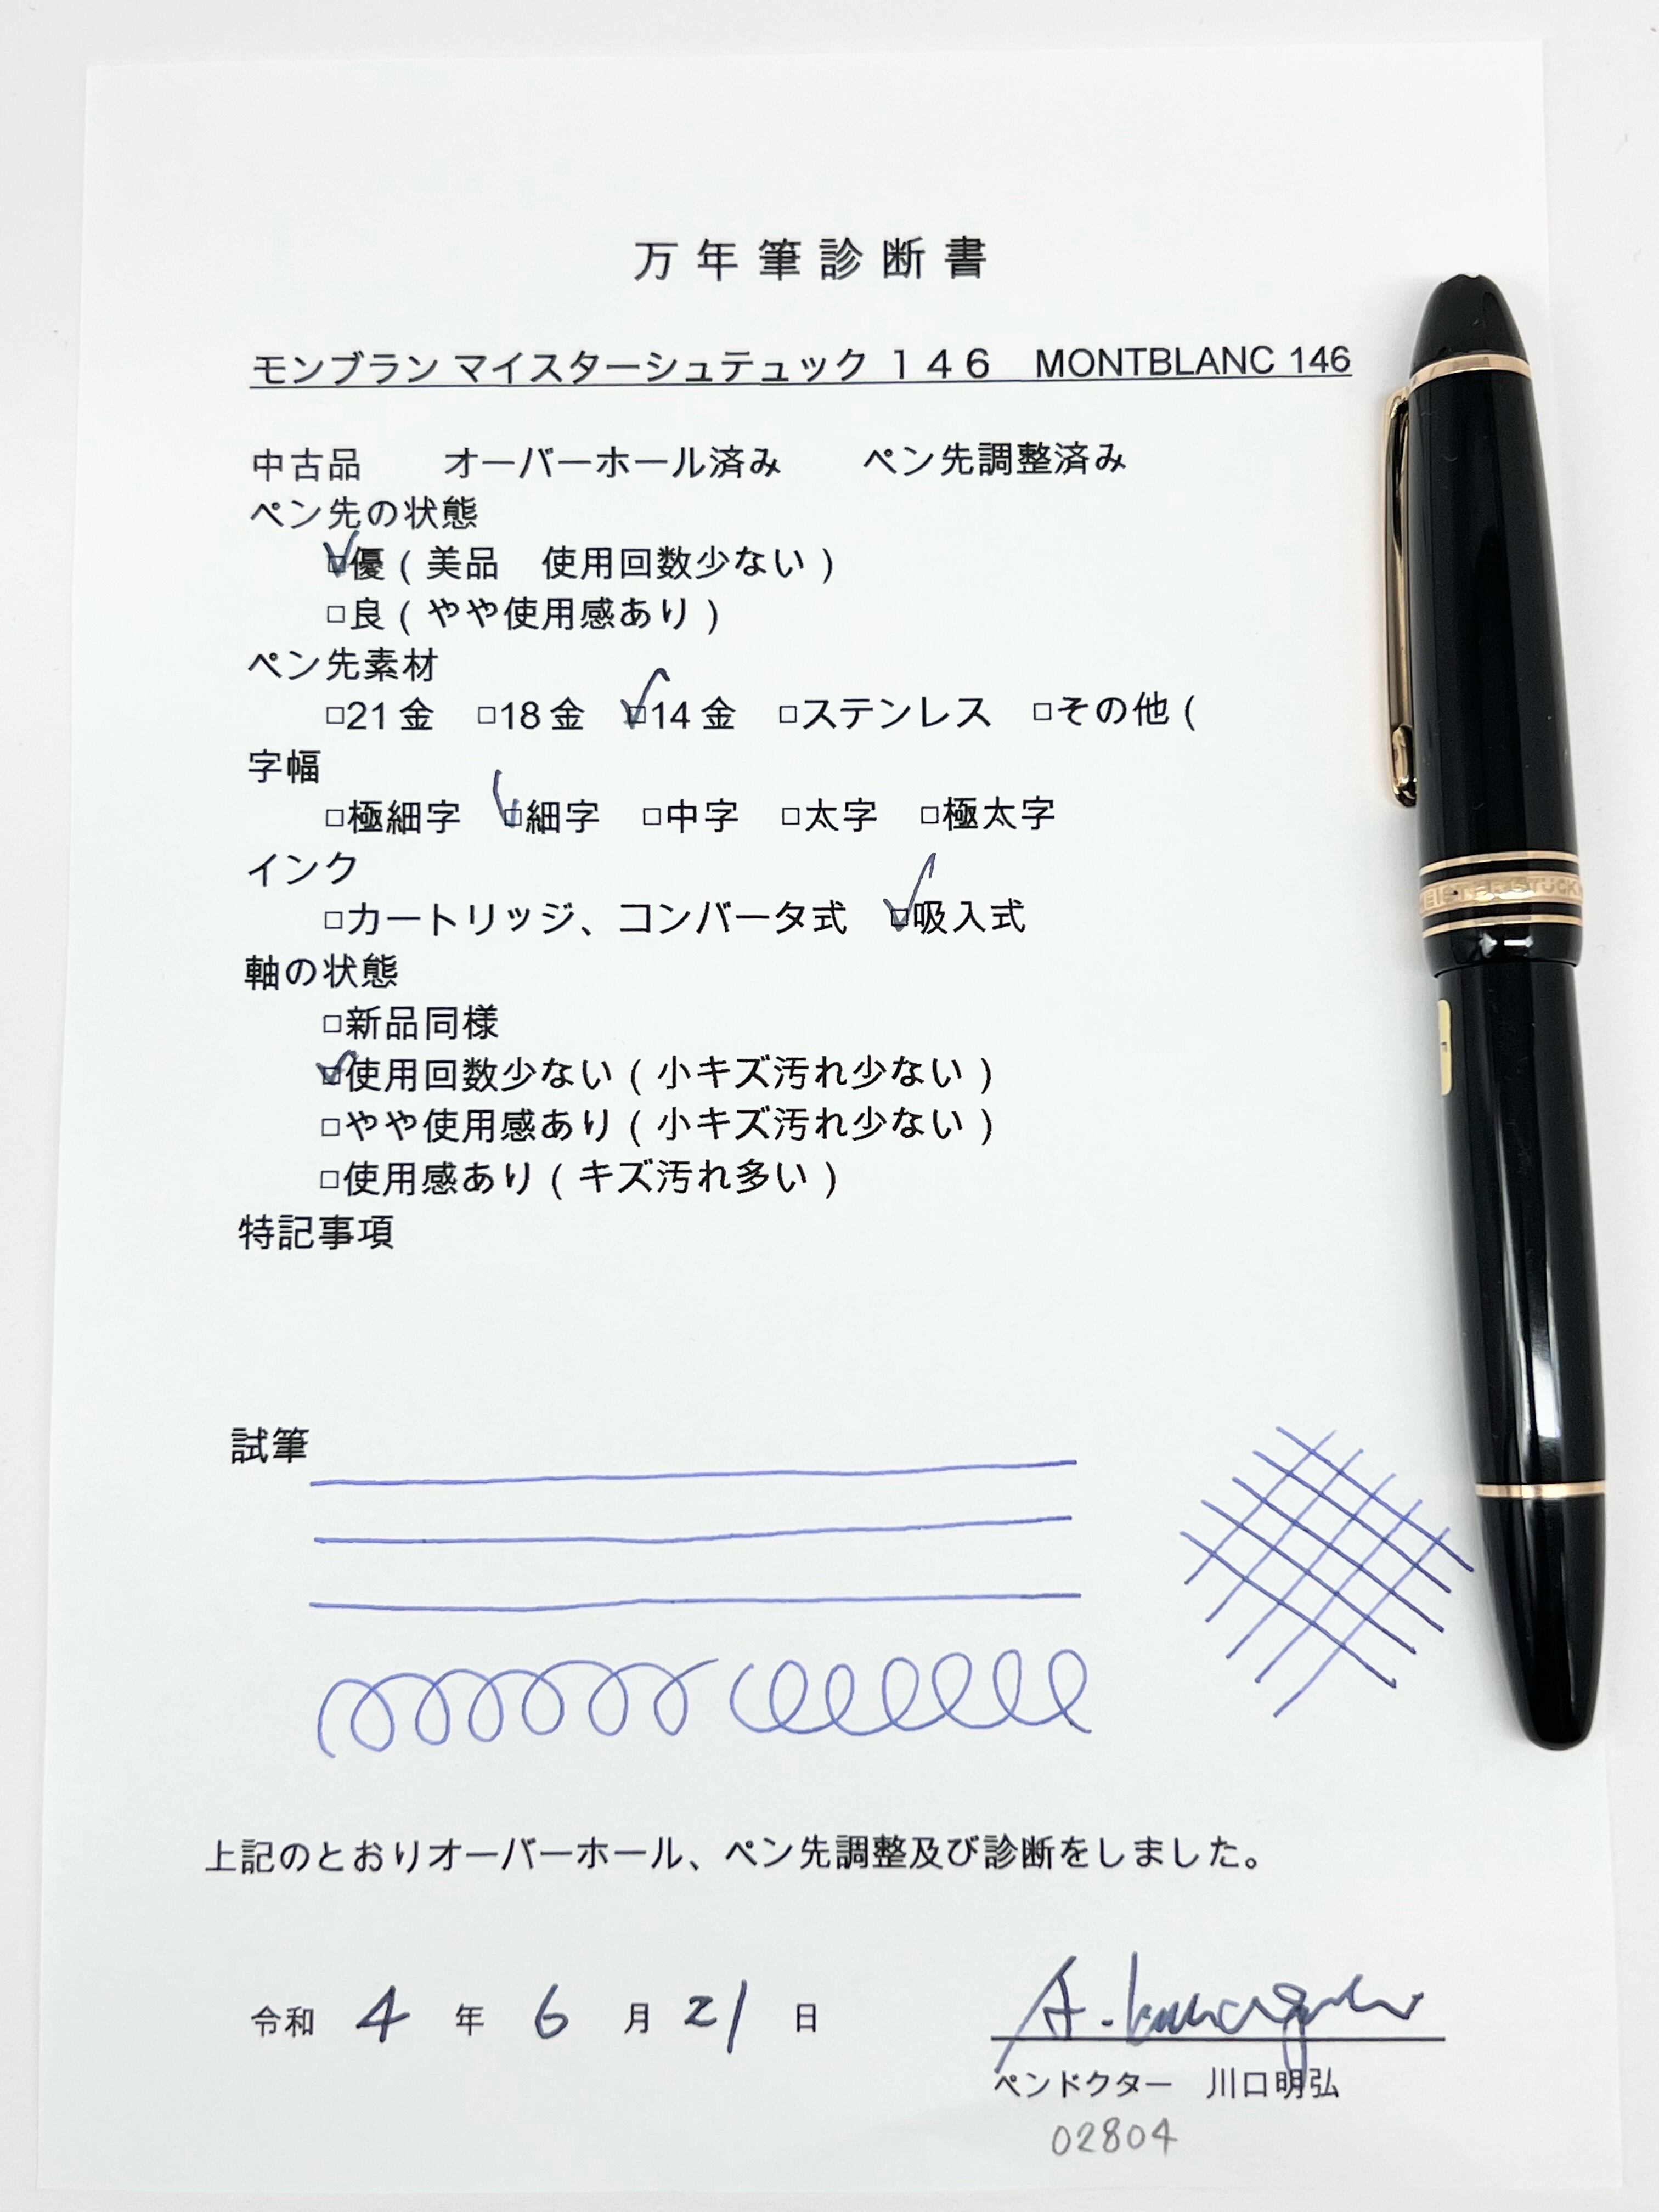 万年筆診断書
モンブラン マイスターシュテュック １４６　MONTBLANC 146
中古品　　オーバーホール済み　　ペン先調整済み
ペン先の状態
☑優（美品　使用回数少ない）
□良（やや使用感あり）
ペン先素材
□21金　□18金　☑14金　□ステンレス　□その他（
字幅
□極細字　☑細字　□中字　□太字　□極太字
インク
□カートリッジ、コンバータ式　☑吸入式
軸の状態
□新品同様
☑使用回数少ない（小キズ汚れ少ない）
□やや使用感あり（小キズ汚れ少ない）
□使用感あり（キズ汚れ多い）
特記事項
試筆
上記のとおりオーバーホール、ペン先調整及び診断をしました。
令和 4 年 6 月 21 日
A. Kawaguchi
ペンドクター　川口明弘
02804
EISTERSTÜCK